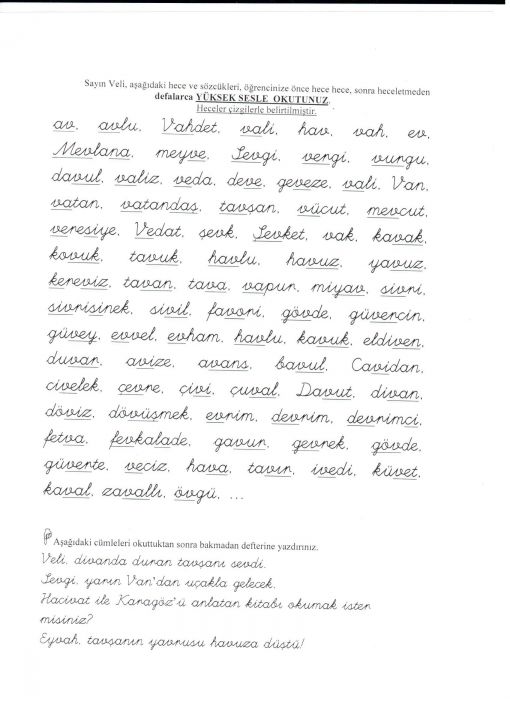 Sayın Veli, aşağıdaki hece ve sözcükleri, öğrencinize önce hece hece, sonra heceletmeden
defalarca YÜKSEK SESLE OKUTUNUZ.
Heceler çizgilerle belirtilmiştir.
av, avlu, Vahdet, vali, hav, vah, ev,
Mevlana, meyve, Sevgi, vengi, vungu,
davul, valiz, veda, deve, geveze, vali, Van,
vatan, vatandaş, tavşan, vücut, mevcut,
veresiye, Vedat, şevk, Şevket, vak, kavak,
kovuk, tavuk, havlu, havuz, yavuz,
kereviz, tavan, tava, vapur, miyav, sivri,
sivrisinek, sivil, favori, gövde, güvercin,
güvey, evvel, evham, havlu, kavuk, eldiven,
duvar, avize, avans, bavul, Cavidan,
civelek, çevre, çivi, çuval, Davut, divan,
döviz, dövüşmek, evrim, devrim, devrimci,
fetva, fevkalade, gavur, gevrek, gövde,
güverte, veciz, hava, tavır, ivedi, küvet,
kaval, zavallı, övgü, ...
Aşağıdaki cümleleri okuttuktan sonra bakmadan defterine yazdırınız.
Veli, divanda duran tavşanı sevdi.
Sevgi, yarın Van'dan uçakla gelecek.
Hacivat ile Karagöz'ü anlatan kitabı okumak ister
misiniz?
Eyvah, tavşanın yavrusu havuza düştü!